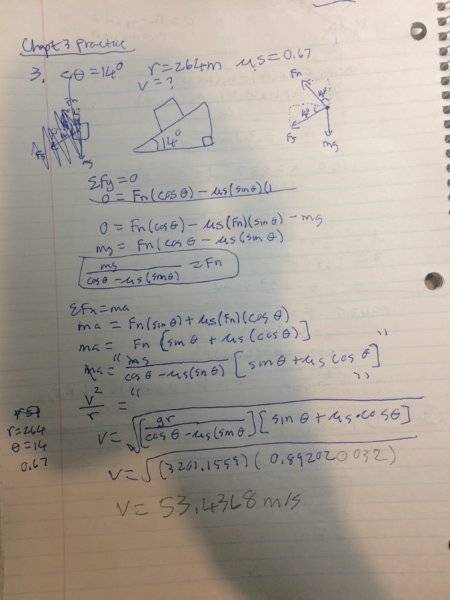 Chapt 3 Practice
3. θ=14° r=264m μs=0.67
v=?
14°
Fn
Fs
mg
mg
ΣFy=0
0 = Fn(cosθ) - μs(sinθ)(
0 = Fn(cosθ) - μs(Fn)(sinθ) - mg
mg = Fn(cosθ - μs(sinθ)
mg / cosθ - μs(sinθ) = Fn
ΣFx=ma
ma = Fn(sinθ) + μs(Fn)(cosθ)
ma = Fn [sinθ + μs(cosθ)]
ma = " mg / cosθ - μs(sinθ) [sinθ + μs cosθ] "
v² / r = " "
r=264
θ=14
0.67
v = √[gr / cosθ - μs(sinθ)] [sinθ + μs·cosθ]
v = √(3201.1559)(0.892020032)
v = 53.4368 m/s